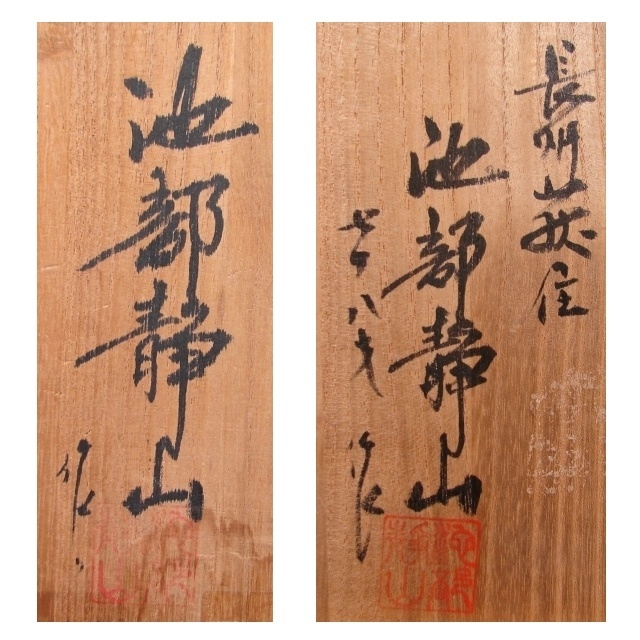 池部静山
作
長州萩住
池部静山
七十八才 作